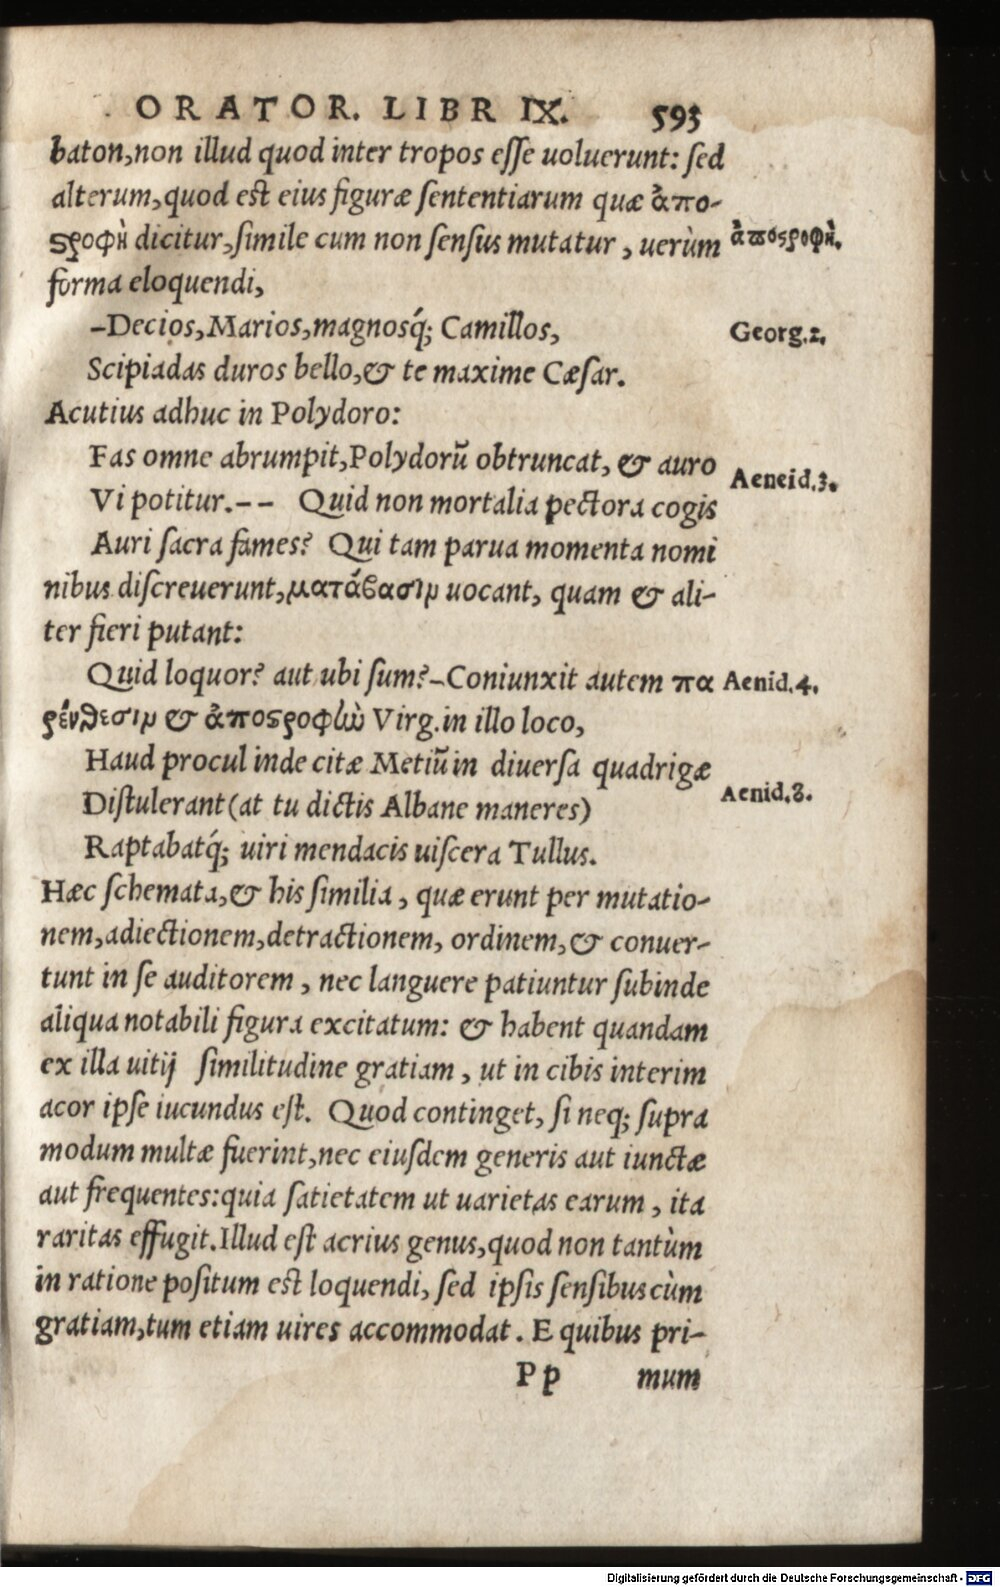 ORATOR. LIBR IX. 593
baton,non illud quod inter tropos eſſe uoluerunt: ſed
alterum,quod est eius figuræ ſententiarum quæ ἀπο-
ϛροφὴ dicitur,ſimile cum non ſenſus mutatur, uerùm
ἀποϛροφὴ.
forma eloquendi,
-Decios,Marios,magnosq́; Camillos,
Georg.2.
Scipiadas duros bello,& te maxime Cæſar.
Acutius adhuc in Polydoro:
Fas omne abrumpit,Polydorũ obtruncat, & auro
Aeneid.3.
Vi potitur.-- Quid non mortalia pectora cogis
Auri ſacra fames? Qui tam parua momenta nomi
nibus diſcreuerunt,ματάβασιν uocant, quam & ali-
ter fieri putant:
Quid loquor? aut ubi ſum?-Coniunxit autem πα
Aenid.4.
ρένθεσιν & ἀποϛροφὼ Virg.in illo loco,
Haud procul inde citæ Metiũ in diuerſa quadrigæ
Distulerant(at tu dictis Albane maneres)
Aenid.8.
Raptabatq́; uiri mendacis uiſcera Tullus.
Hæc ſchemata,& his ſimilia, quæ erunt per mutatio-
nem,adiectionem,detractionem, ordinem,& conuer-
tunt in ſe auditorem, nec languere patiuntur ſubinde
aliqua notabili figura excitatum: & habent quandam
ex illa uitij ſimilitudine gratiam, ut in cibis interim
acor ipſe iucundus eſt. Quod continget, ſi neq; ſupra
modum multæ fuerint,nec eiuſdem generis aut iunctæ
aut frequentes:quia ſatietatem ut uarietas earum, ita
raritas effugit.Illud eſt acrius genus,quod non tantùm
in ratione poſitum est loquendi, ſed ipſis ſenſibus cùm
gratiam,tum etiam uires accommodat. E quibus pri-
Pp mum
Digitalisierung gefördert durch die Deutsche Forschungsgemeinschaft - DFG